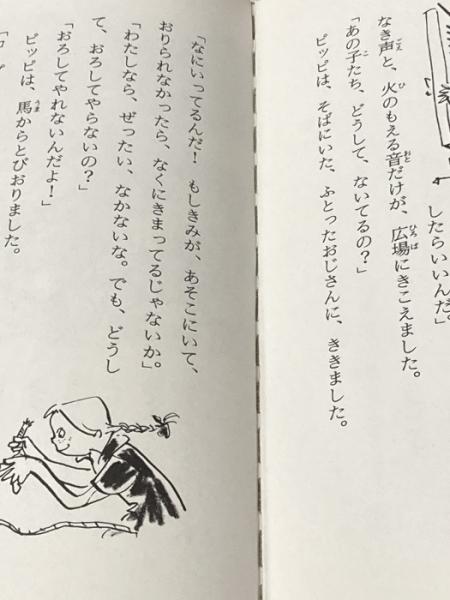 したらいいんだ。」
なき声と、火のもえる音だけが、広場にきこえました。
「あの子たち、どうして、ないてるの？」
ピッピは、そばにいた、ふとったおじさんに、ききました。
「なにいってるんだ！　もしきみが、あそこにいて、
おりられなかったら、なくにきまってるじゃないか。」
「わたしなら、ぜったい、なかないな。でも、どうし
て、おろしてやらないの？」
「おろしてやれないんだよ！」
ピッピは、馬からとびおりました。